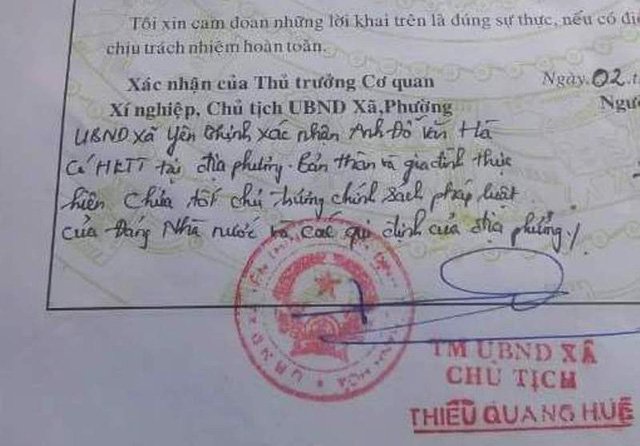 Tôi xin cam đoan những lời khai trên là đúng sự thực, nếu có
chịu trách nhiệm hoàn toàn.
Xác nhận của Thủ trưởng Cơ quan
Xí nghiệp, Chủ tịch UBND Xã,Phường
Ngày 02
UBND xã Yên Thịnh xác nhân Anh Đỗ Văn Hà
Có HKTT tại địa phương. Bản thân và gia đình thực
hiện Chưa tốt chủ trương chính sách pháp luật
của Đảng Nhà nước và các qui định của địa phương./
TM UBND XÃ
CHỦ TỊCH
THIỀU QUANG HUẾ